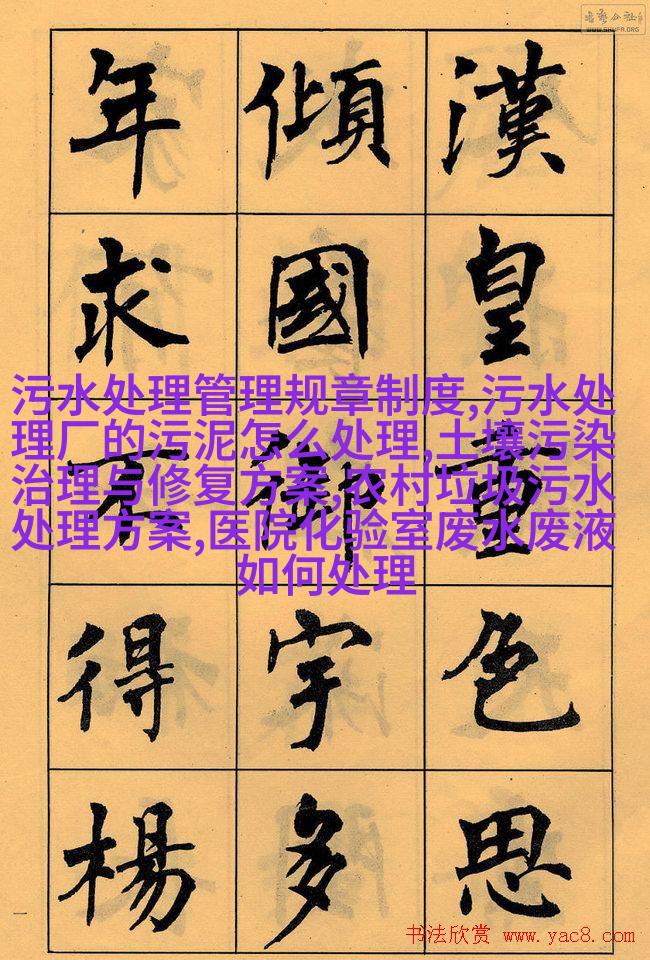 漢皇重色思
傾國御宇多
年求不得楊
污水处理管理规章制度,污水处
理厂的污泥怎么处理,土壤污染
治理与修复方案,农村垃圾污水
处理方案,医院化验室废水废液
如何处理
一
书法欣赏 www.yac8.com
WWW.SHUFA.ORG